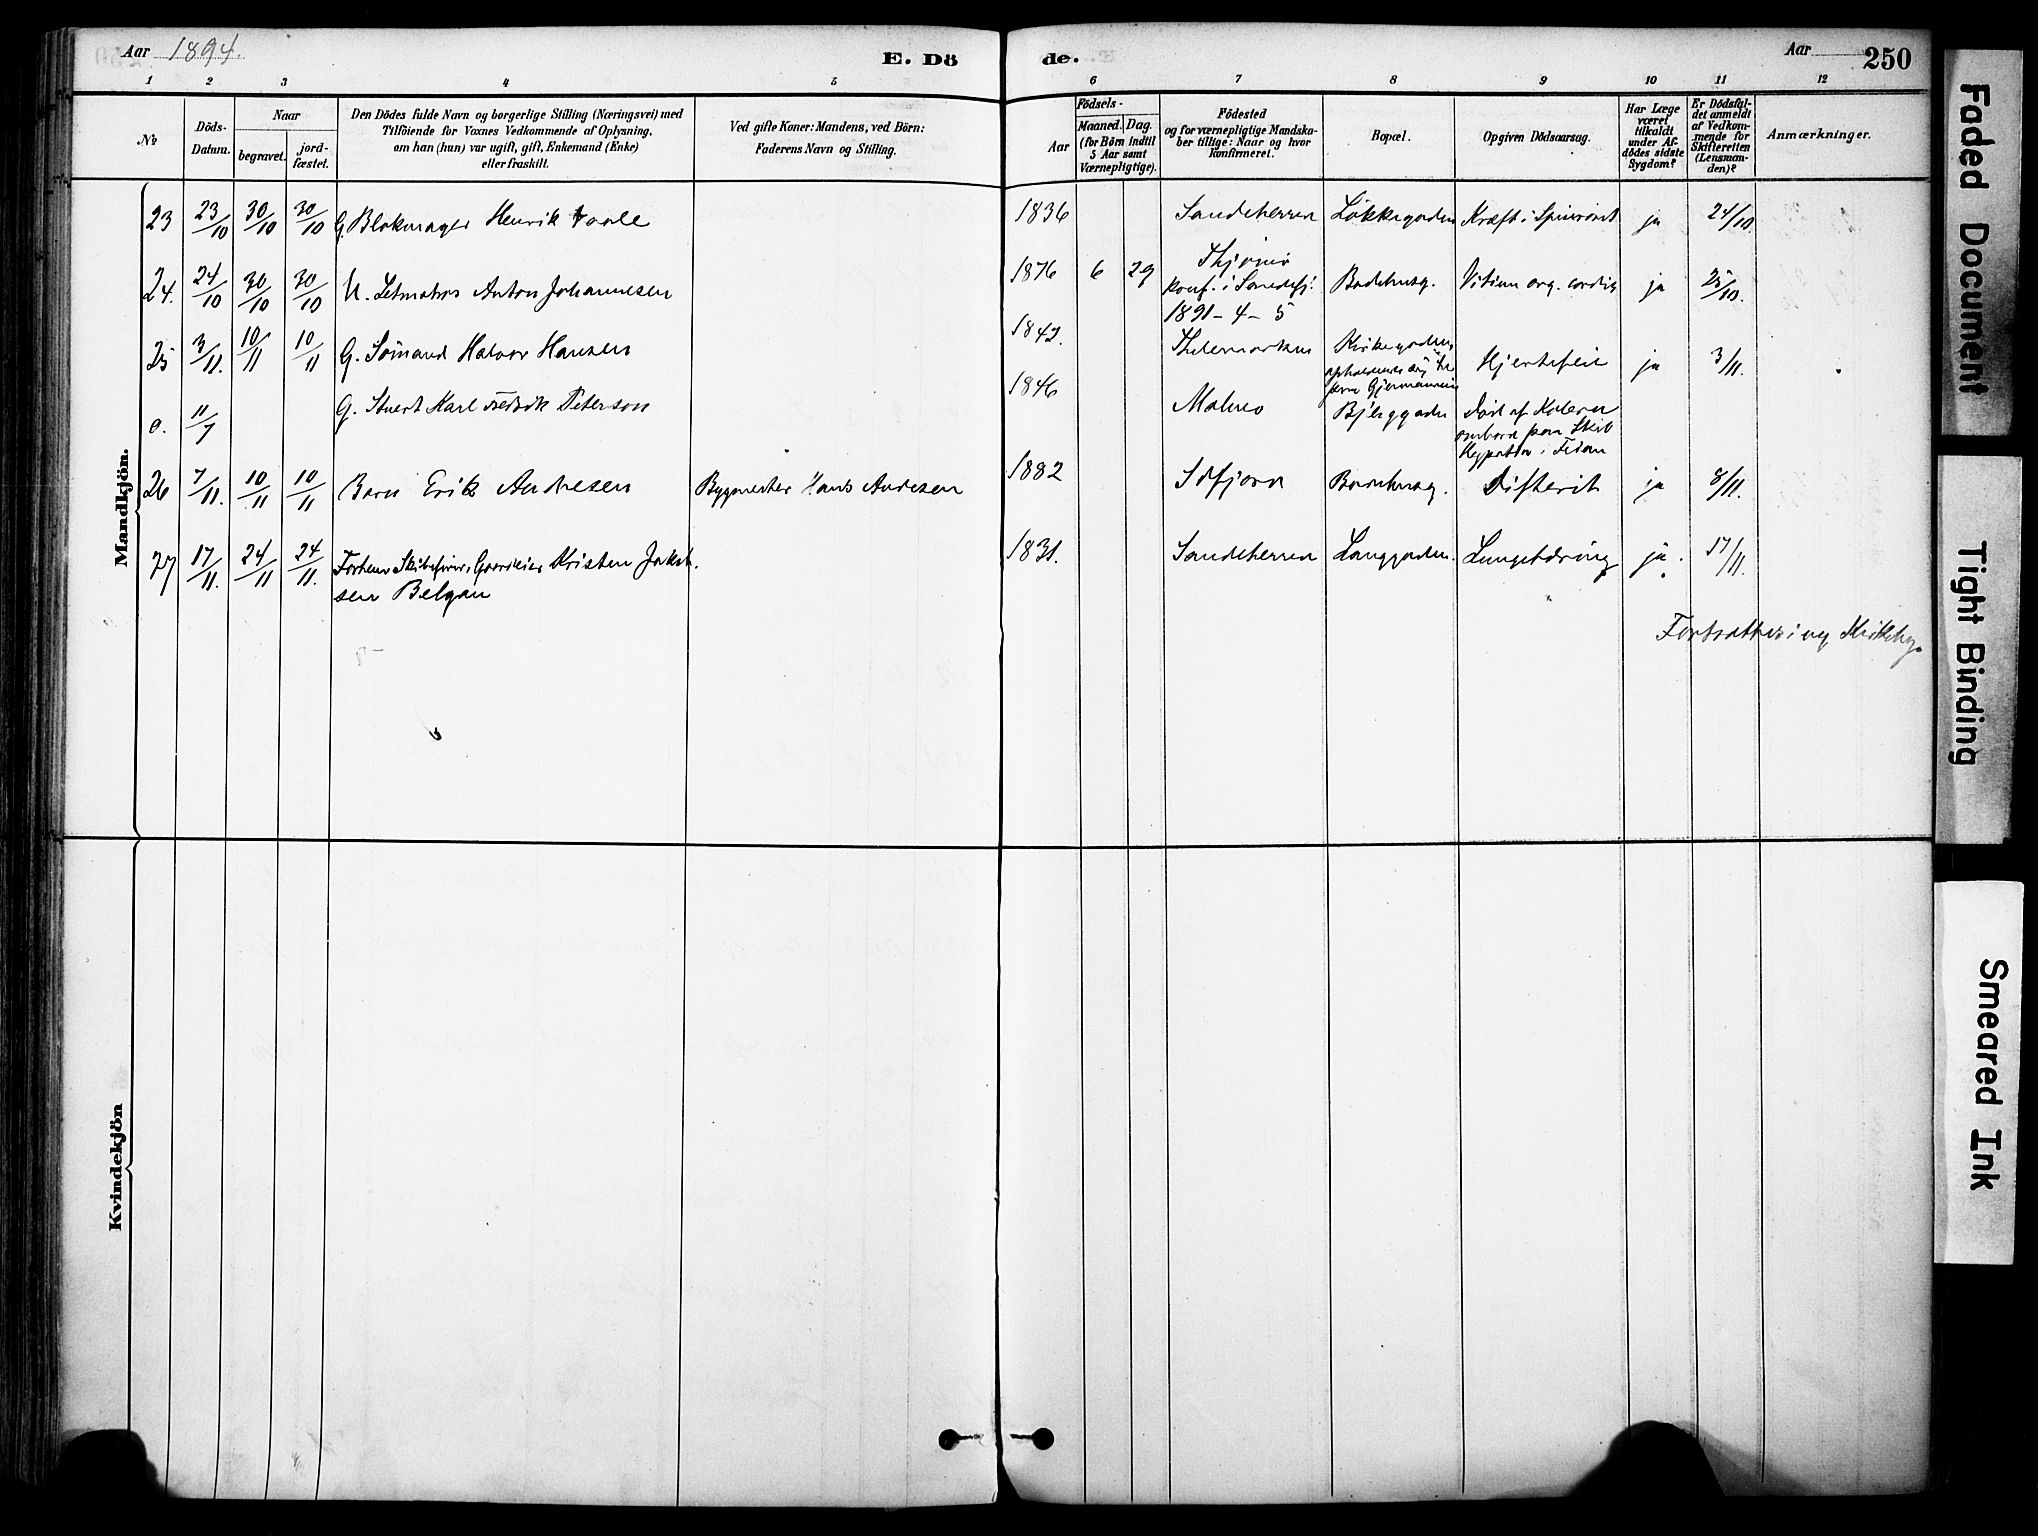 Aar 1894.
E. Dö
de.
Aar
250
1 2 3 4 5 6 7 8 9 10 11 12
№
Döds-Datum.
Naar
begravet.
jordfæstet.
Den Dödes fulde Navn og borgerlige Stilling (Næringsvei) med
Tilföiende for Voxnes Vedkommende af Oplysning,
om han (hun) var ugift, gift, Enkemand (Enke)
eller fraskilt.
Ved gifte Koner: Mandens, ved Börn:
Faderens Navn og Stilling.
Födsels-
Aar
Maaned. Dag.
(for Börn indtil
5 Aar samt
Værnepligtige).
Födested
og for værnepligtige Mandska-
ber tillige: Naar og hvor
konfirmeret.
Bopæl.
Opgiven Dödsaarsag.
Har Læge
været
tilkaldt
under Af-
dödes sidste
Sygdom?
Er Dödsfal-
det anmeldt
af Vedkom-
mende for
Skifteretten
(Lensman-
den)?
Anmærkninger.
Mandkjön.
23 23/10 30/10 30/10 G. Blokmager Henrik 1836 Sandeherred Løkkegaden Kræft i Spiserøret ja 24/10.
24. 24/10 30/10 30/10 U. Letmatros Anton Johannesen 1876 6 29 Thjømø
konf. i Sandefj.
1891-4-5
Badehusg. Vitium org. cordis ja 25/10.
25 3/11. 10/11 10/11 G. Sømand Halvor Hansen 1842. Thelemarken Kirkegaden
Hjertefeil ja 3/11.
0. 11/7 G. Stuert Karl Fredrik Peterson 1846 Malmø Bjerggaden Død af Kolera
ombord paa Skib
26 7/11. 10/11 10/11 Barn Erik Andresen Bygmester Hans Andresen 1882 Sdfjord Badehusg. Difterit ja 8/11.
27 17/11. 24/11 24/11. Forhenv. Skibsfører, Gaardeier Kristen Jakob-
sen Belgau
1831. Sandeherred Langgaden. Lungetæring ja. 17/11.
Fortsættes i ny Kirkebog.
Kvindekjön
Faded Document
Tight Binding
Smeared Ink